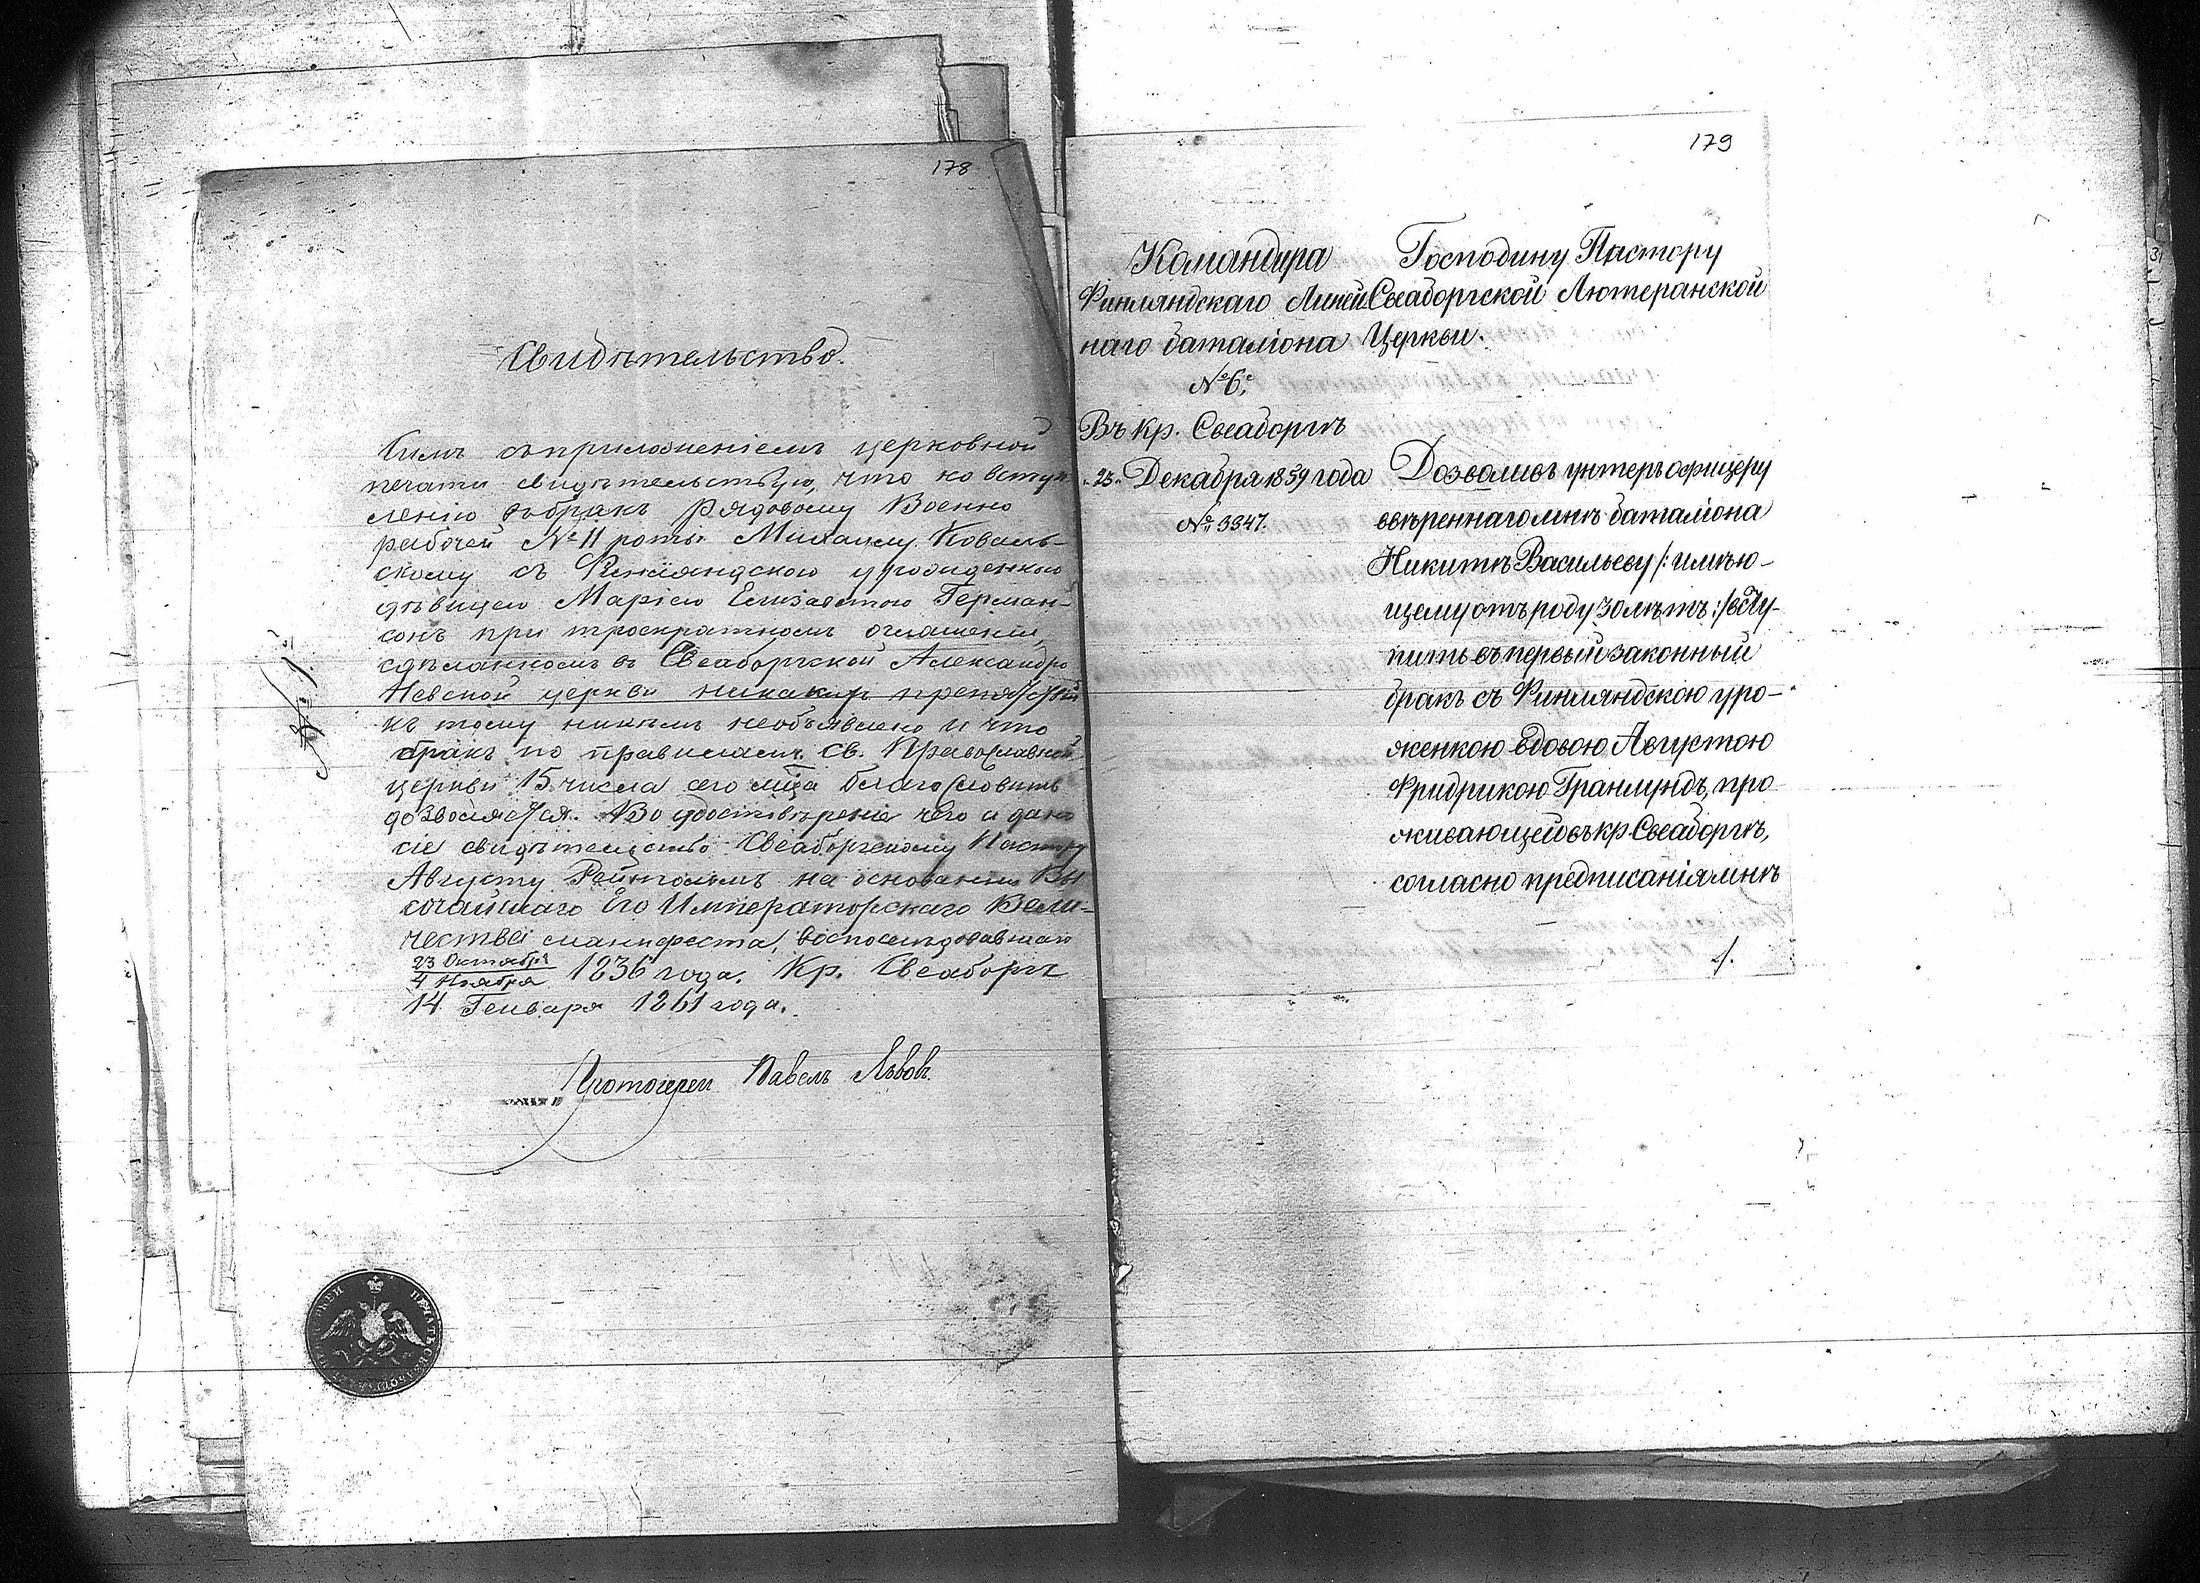 178
Свидѣтельство.
Симъ съ приложеніемъ церковной
печати свидѣтельствую, что ко вступ
ленію въ бракъ рядовому Военно
рабочей № 11 роты Михаилу Коваль-
скому съ Финляндскою уроженкою
дѣвицею Маріею Елизаветою Герман-
сонъ при троекратномъ оглашеніи,
сдѣланномъ въ Свеаборгской Александро
Невской церкви никакихъ препятствій
къ тому никѣмъ необъявлено и что
бракъ по правиламъ Св. Православной
церкви 15 числа сего мѣца благословить
дозволяется. Во удостовѣреніе чего и дано
сіе свидѣтельство Свеаборгскому Пастору
Августу на основаніи Вы
сочайшаго Его Императорскаго Вели-
чества манифеста, воспослѣдовавшаго
23 Октября
4 Ноября 1836 года. Кр. Свеаборгъ
14 Генваря 1861 года.
№ 1.
Протоіерей Павелъ Львовъ.
179
Командира
Финляндскаго Линей
наго баталіона
№ 6.
Въ кр. Свеаборгѣ
"23" Декабря 1859 года
№ 3347.
Господину Пастору
Свеаборгской Лютеранской
Церкви.
Дозволивъ унтеръ офицеру
ввѣреннаго мнѣ баталіона
Никитѣ Васильеву /: имѣю-
щему отъ роду 30 лѣтъ :/ всту-
пить въ первый законный
бракъ съ Финляндскою уро-
женкою вдовою Августою
Фридрикою Гранлундъ, про
живающей въ кр. Свеаборгѣ,
согласно предписанія мнѣ